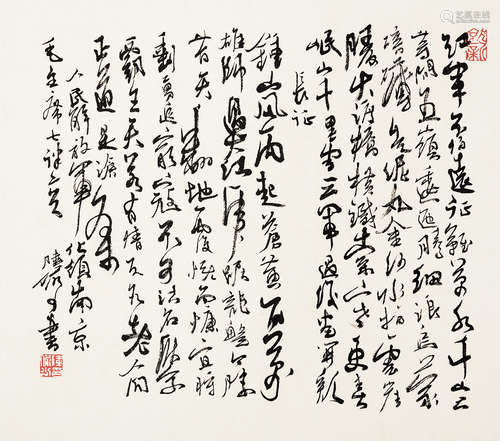 紅軍不怕遠征難萬水千山只
等閒五嶺逶迤騰細浪烏蒙
磅礴走泥丸金沙水拍雲崖
暖大渡橋橫鐵索寒更喜
岷山千里雪三軍過後盡開顏
長征
鍾山風雨起蒼黃百萬
雄師過江虎踞龍盤今勝
昔天翻地覆慨而慷宜將
剩勇追窮寇不可沽名學
霸王天若有情天亦老人間
正道是滄桑
人民解放軍佔領南京
毛主席七律二首
陸儼少書